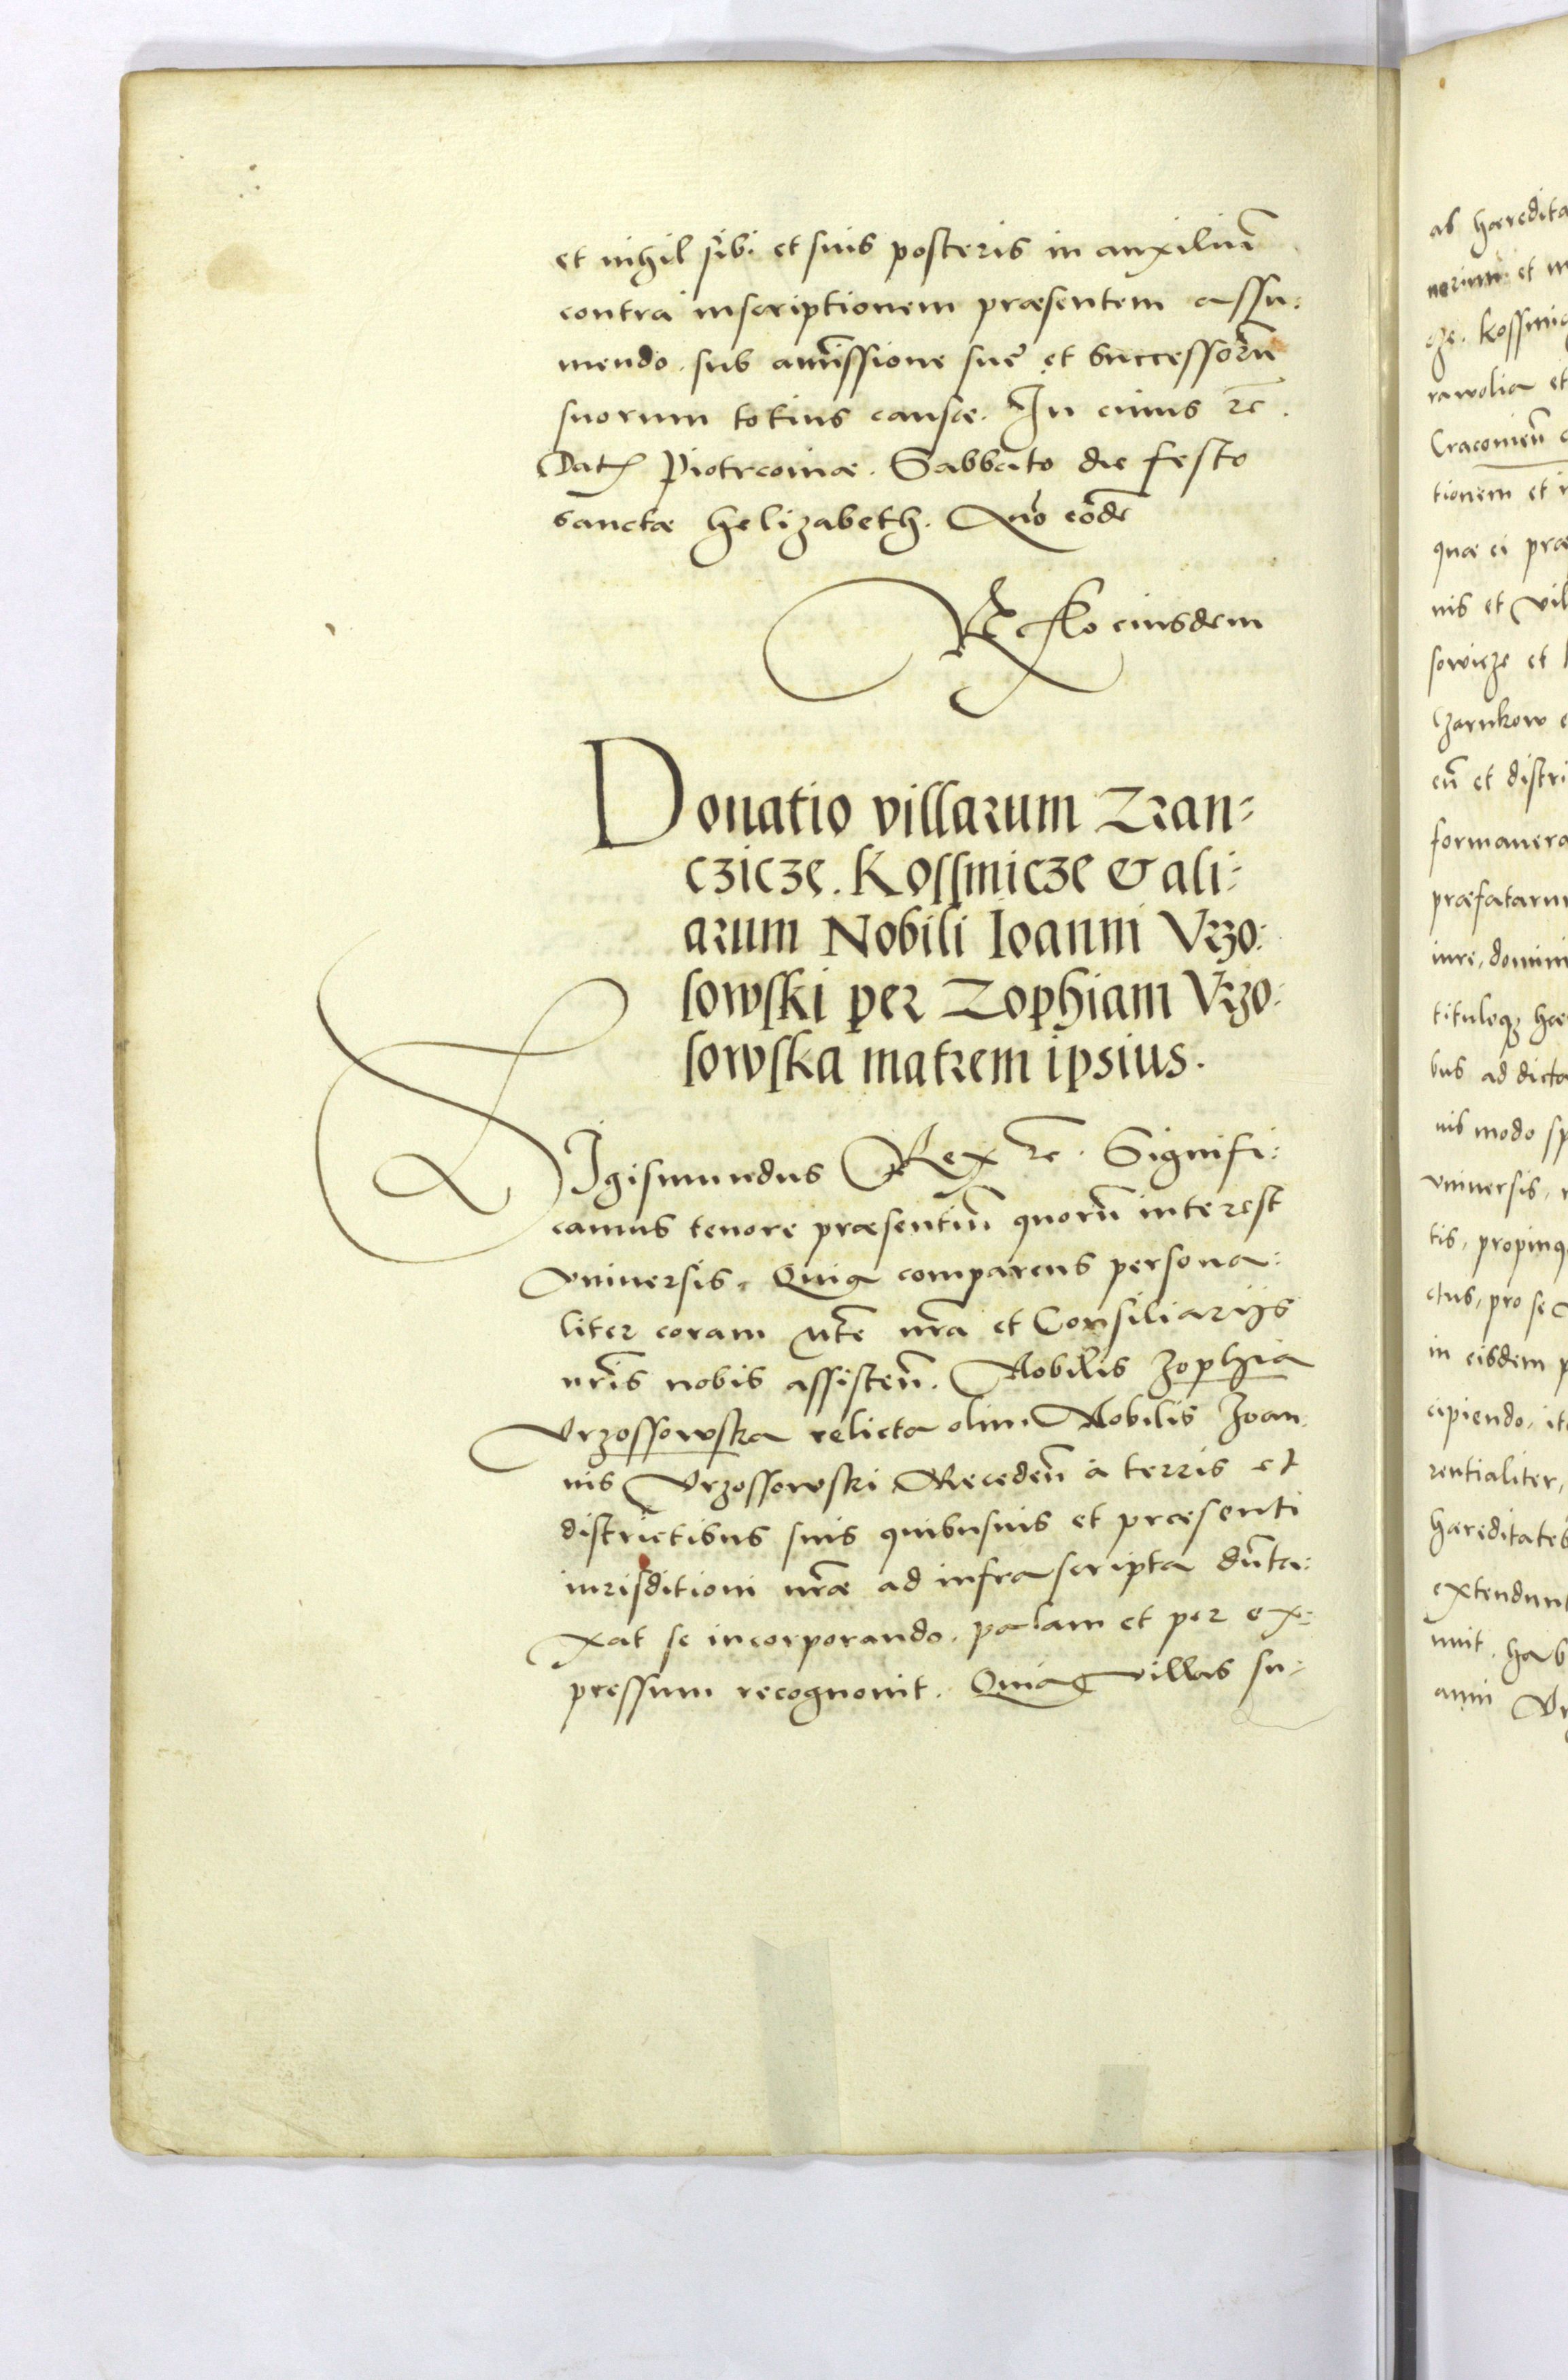 et nihil sibi et suis posteris in auxiliū
contra inscriptionem præsentem assu:
mendo. sub amissione suę et Successorū
suorum totius causæ. In cuius rc̄.
Dat. Piotrcoviæ. Sabbato die festo
Sanctæ Helizabeth. Año eodē
Rlo eiusdem
Donatio villarum Zran-
cziczę. Kossmicze & ali:
arum Nobili Ioanni Vrzo:
sowski per Zophiam Vrzo:
sowska matrem ipsius.
SIgismundus Rex rc̄. Signifi:
camus tenore præsentiū quorū interest
Vniuersis. Quia comparens persona:
liter coram Mte nr̄a et Consiliarijs
nr̄is nobis assisteñ. Nobilis Zophia
Vrzossowska relicta olim Nobilis Ioan
nis Vrzossowski Recedeñ à terris et
districtibus suis quibusuis et præsenti
iurisditioni nr̄æ ad infrascripta dūta:
xat se incorporando. palam et per ex:
pressum recognouit. Quia villas su:
ab hæredita
nerium et m
cze. Kossmic
ra wolia et
Cracovieñ
tionem et i
quæ ei præ
nis et Vil
sowicze et
Czarnkow e
eñ et distri
formauera
præfatarum
iure, domini
tituloq3 hæ
bus ad dicta
nis modo sp
vniuersis,
tis, propinq
ctus, pro se
in eisdem p
cipiendo, it
rentialiter,
hæreditates
extendunt
uit. hab
anni Vr